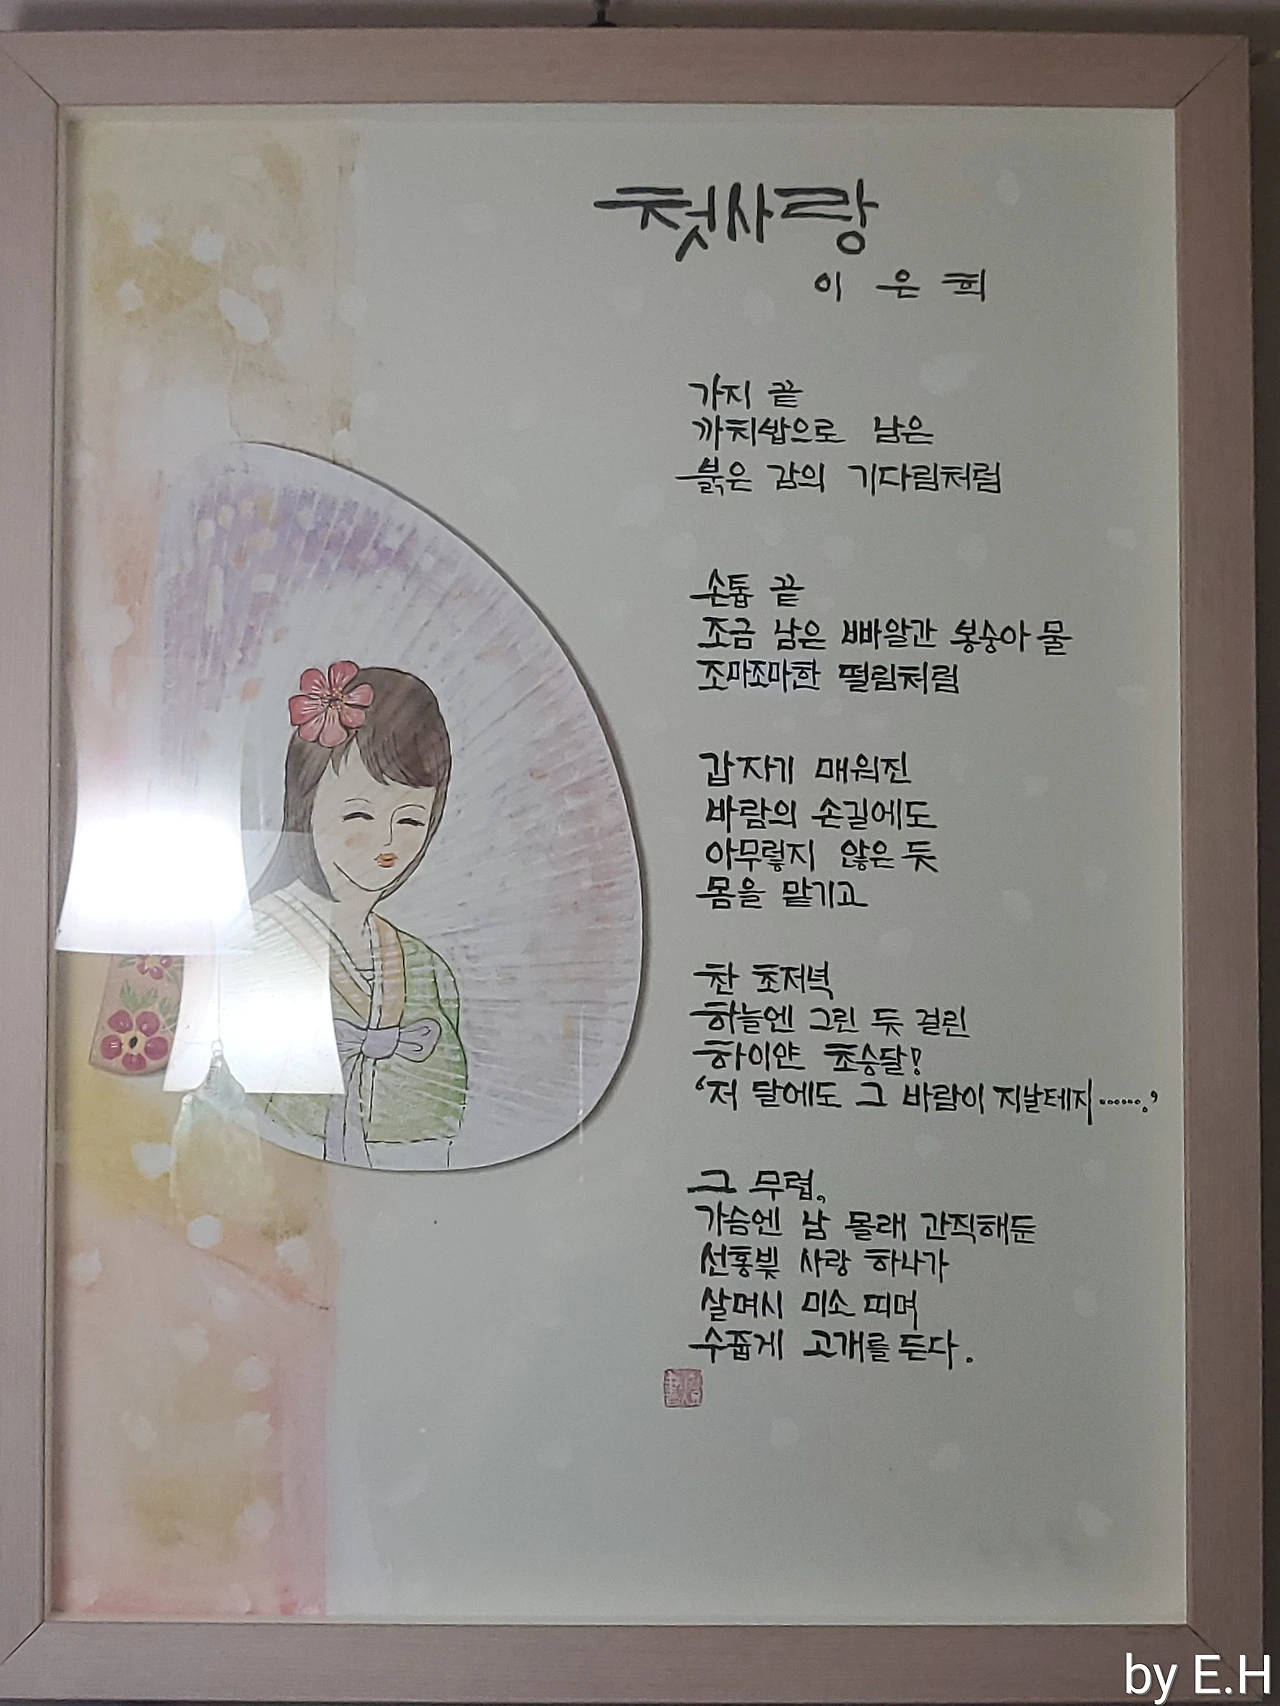 첫사랑
이 은 희
가지 끝
까치밥으로 남은
붉은 감의 기다림처럼
손톱 끝
조금 남은 빠알간 봉숭아 물
조마조마한 떨림처럼
갑자기 매워진
바람의 손길에도
아무렇지 않은 듯
몸을 맡기고
찬 초저녁
하늘엔 그린 듯 걸린
하이얀 초승달!
‘저 달에도 그 바람이 지날테지·······.’
그 무렵,
가슴엔 남 몰래 간직해둔
선홍빛 사랑 하나가
살며시 미소 띠며
수줍게 고개를 든다.
by E.H